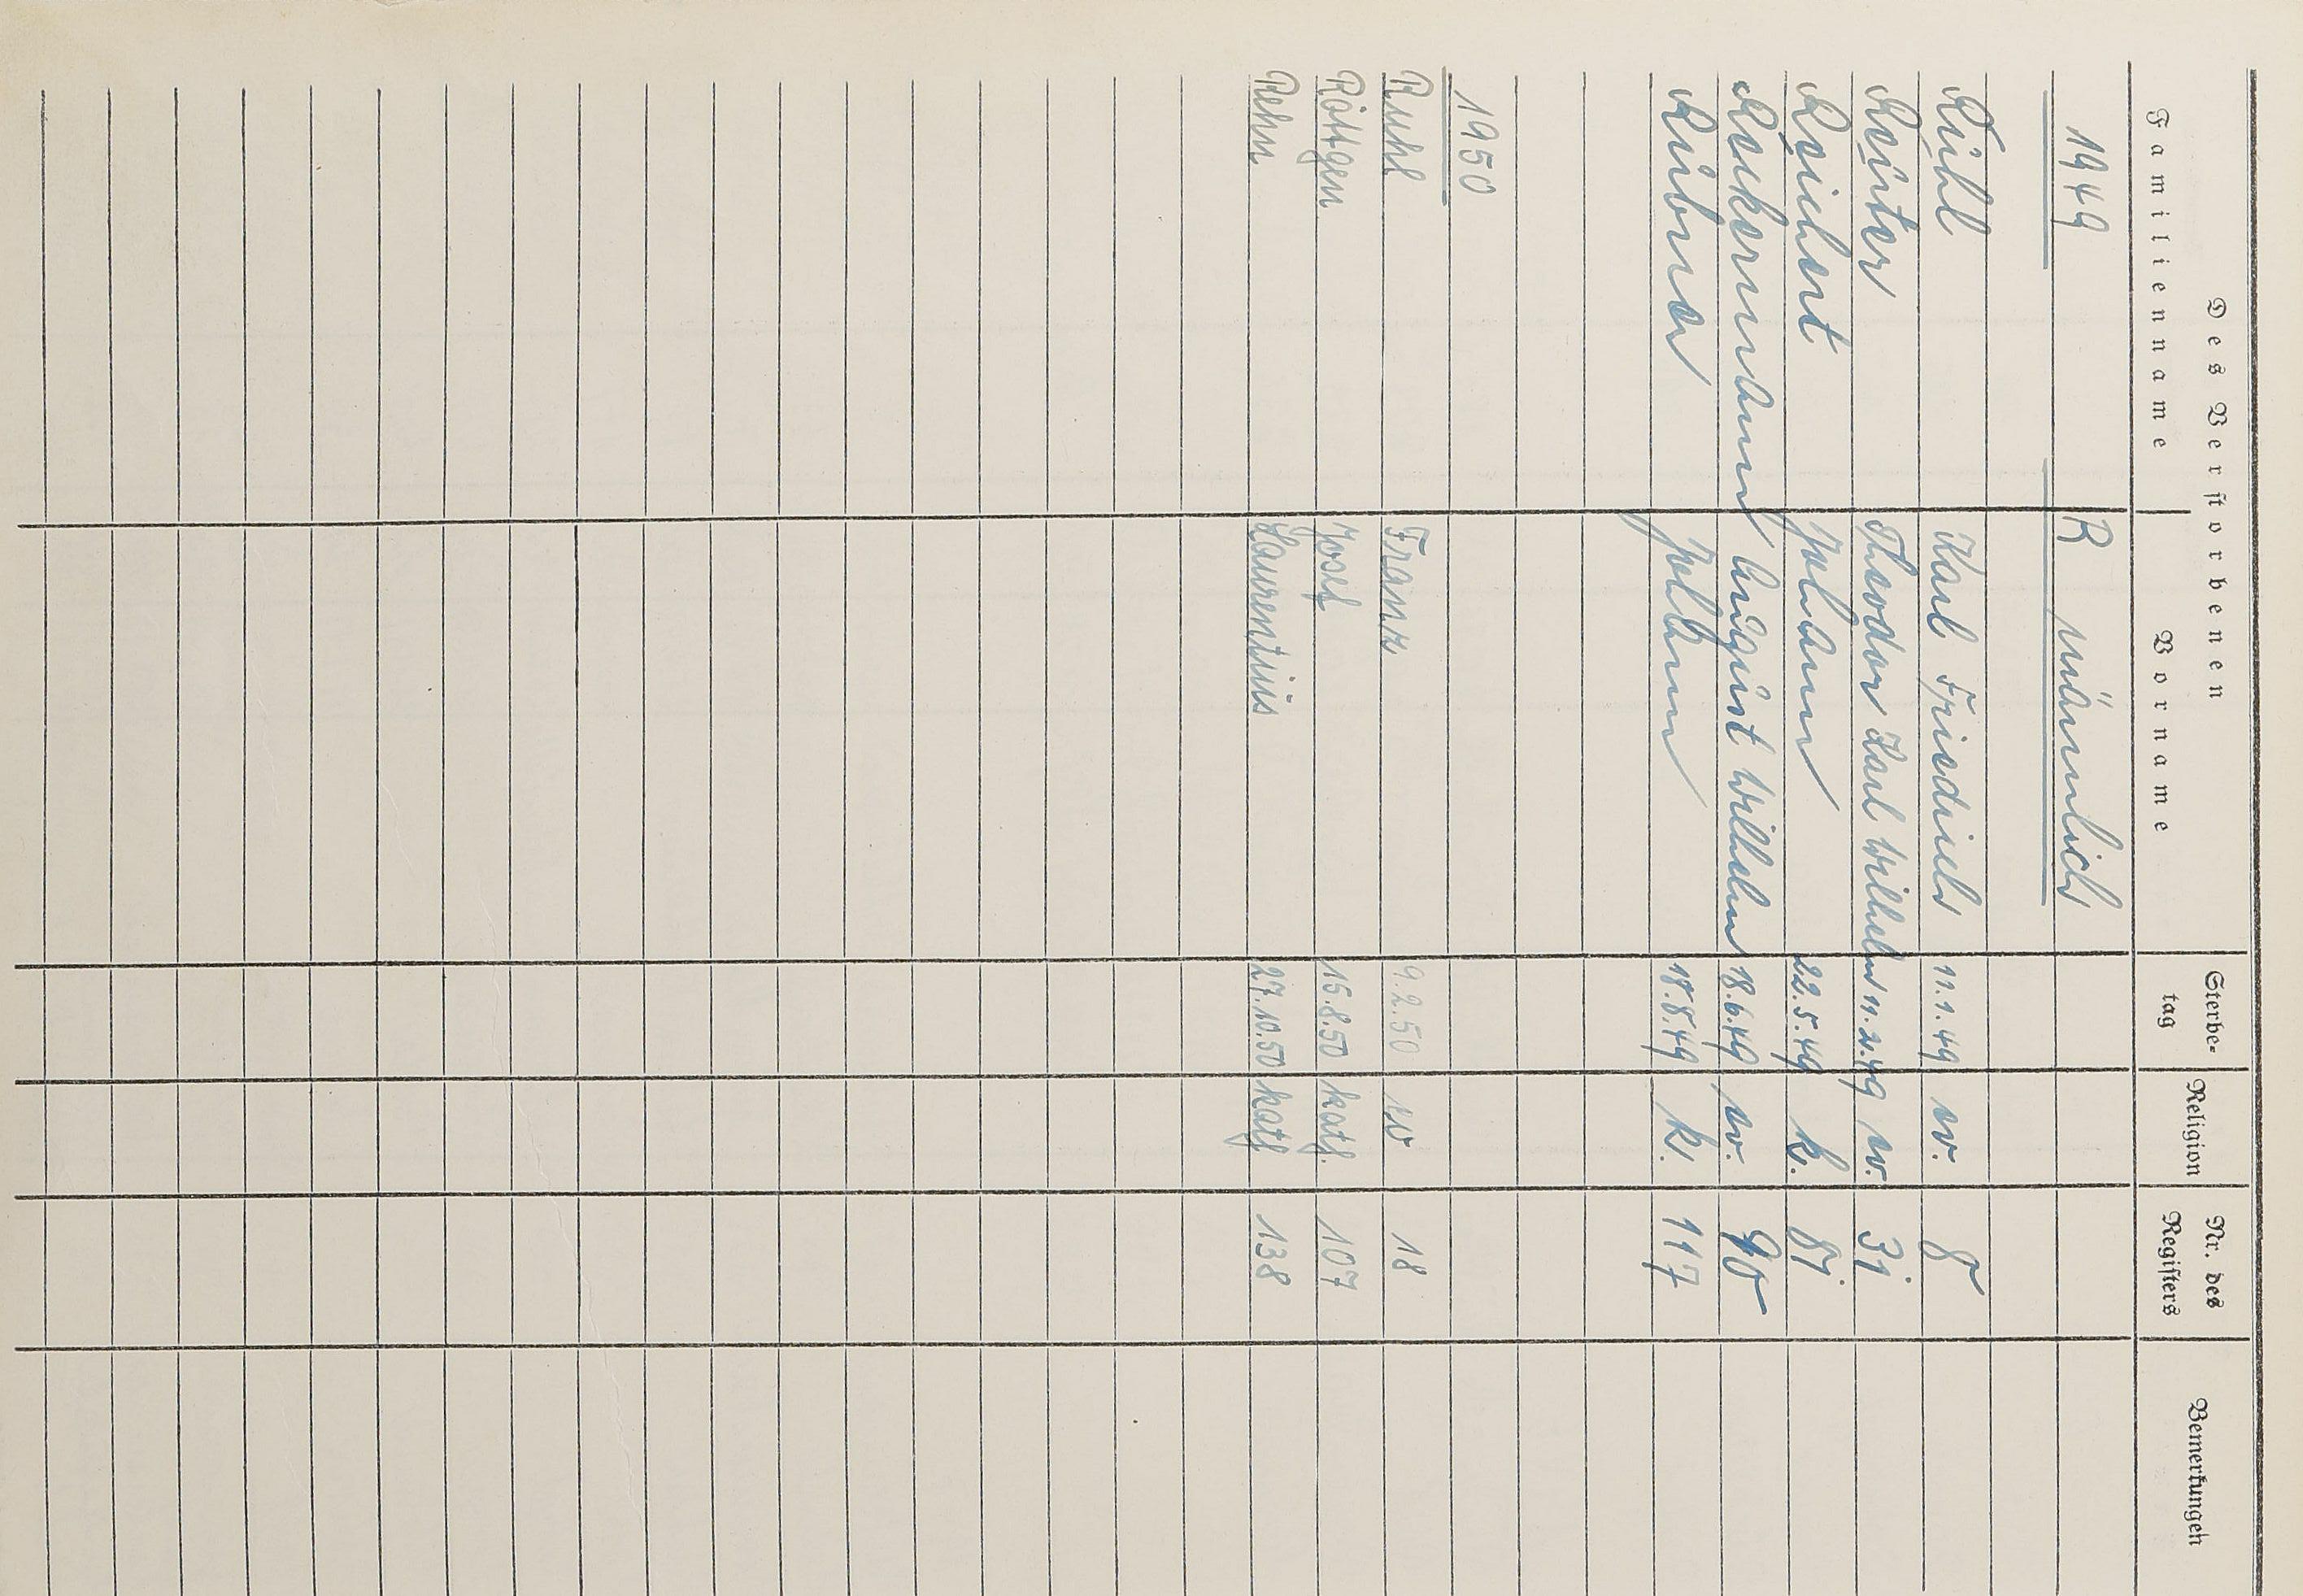 Des Verstorbenen Sterbe- Religion Nr. des Bemerkungen
Familienname Vorname tag Registers
1949 R männlich
Rühl Karl Friedrich 11.1.49 ev. 8
Reuter Theodor Karl Wilhelm 11.2.49 ev. 31
Reichert Johann 22.5.49 k. 81
August Wilhelm 18.6.49 ev. 98
Johann 18.8.49 k. 117
1950
Ruhl Franz 9.2.50 ev 18
Röttgen Josef 15.8.50 kath. 107
Rehn Laurentius 27.10.50 kath 138